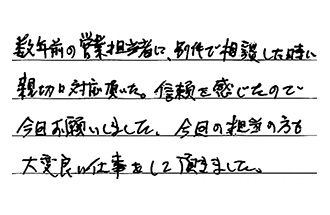 数年前の営業担当者に、別件で相談した時に
親切に対応頂いた。信頼を感じたので
今回お願いしました。今回の担当の方も
大変良い仕事をして頂きました。